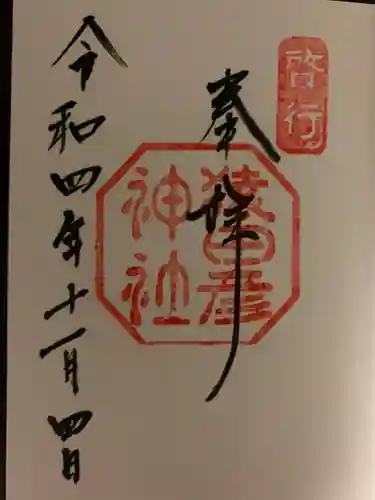 啓行
奉拝
猿田彦
神社
令和四年十一月四日